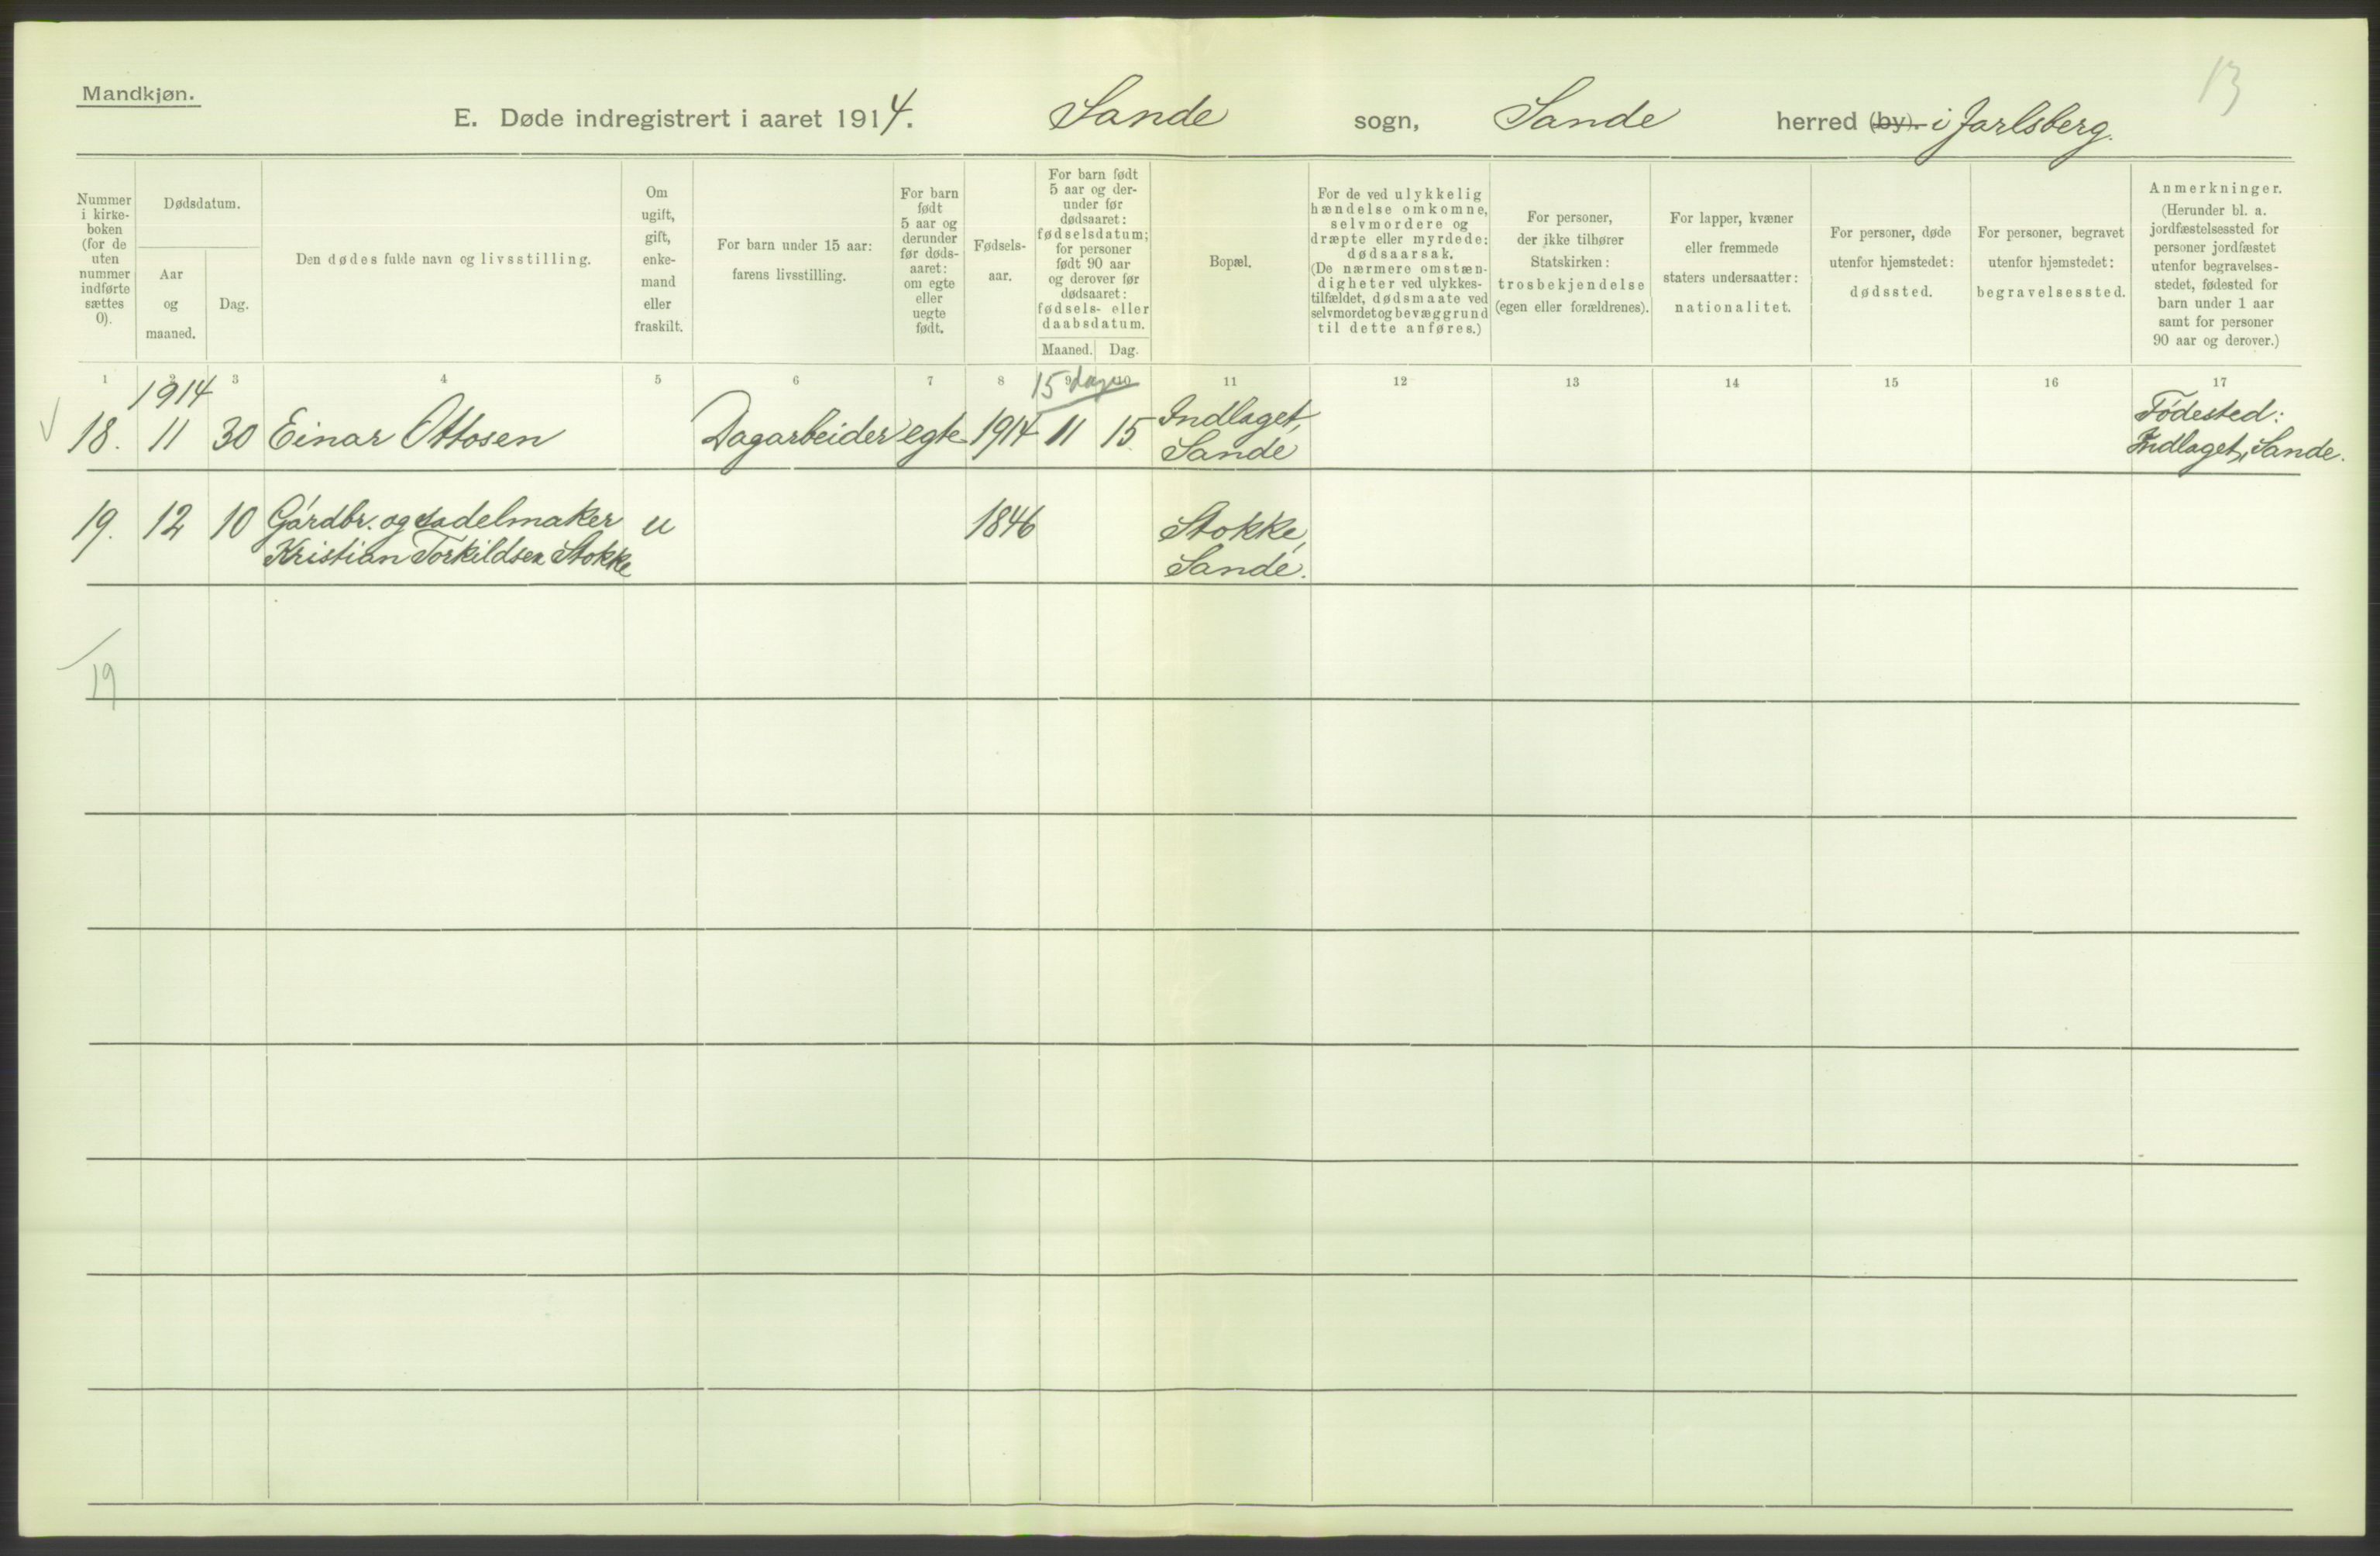 13
Mandkjøn.
E. Døde indregistrert i aaret 1914. Sande sogn, Sande herred (by). i Jarlsberg.
Nummer
i kirke-
boken
(for de
uten
nummer
indførte
sættes
0).
Dødsdatum.
Aar
og
maaned.
Dag.
Den dødes fulde navn og livsstilling.
Om
ugift,
gift,
enke-
mand
eller
fraskilt.
For barn under 15 aar:
farens livsstilling.
For barn
født
5 aar og
derunder
før døds-
aaret:
om egte
eller
uegte
født.
Fødsels-
aar.
For barn født
5 aar og der-
under før
dødsaaret:
fødselsdatum;
for personer
født 90 aar
og derover før
dødsaaret:
fødsels- eller
daabsdatum.
Maaned. Dag.
Bopæl.
For de ved ulykkelig
hændelse omkomne,
selvmordere og
dræpte eller myrdede:
dødsaarsak.
(De nærmere omstæn-
digheter ved ulykkes-
tilfældet, dødsmaate ved
selvmordet og bevæggrund
til dette anføres.)
For personer,
der ikke tilhører
Statskirken:
trosbekjendelse
(egen eller forældrenes).
For lapper, kvæner
eller fremmede
staters undersaatter:
nationalitet.
For personer, døde
utenfor hjemstedet:
dødssted.
For personer, begravet
utenfor hjemstedet:
begravelsessted.
Anmerkninger.
(Herunder bl. a.
jordfæstelsessted for
personer jordfæstet
utenfor begravelses-
stedet, fødested for
barn under 1 aar
samt for personer
90 aar og derover.)
1 2 3 4 5 6 7 8 9 10 11 12 13 14 15 16 17
1914 15 dage
18. 11 30 Einar Ottosen Dagarbeider egte 1914 11 15 Indlaget,
Sande
Fødested:
Indlaget, Sande.
19. 12 10 Gårdbr. og sadelmaker u 1846 Stokke,
Kristian Torkildsen Stokke Sande.
19